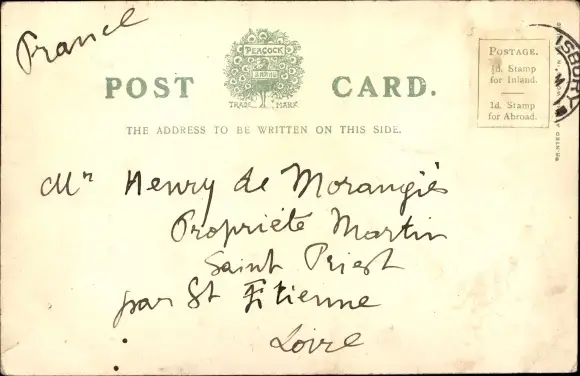 France
PEACOCK
BRAND
TRADE MARK
POST CARD.
THE ADDRESS TO BE WRITTEN ON THIS SIDE.
POSTAGE.
½d. Stamp
for Inland.
1d. Stamp
for Abroad.
ISBURY
Mr Henry de Morangiés
Propriété Martin
Saint Priest
par St Etienne
Loire